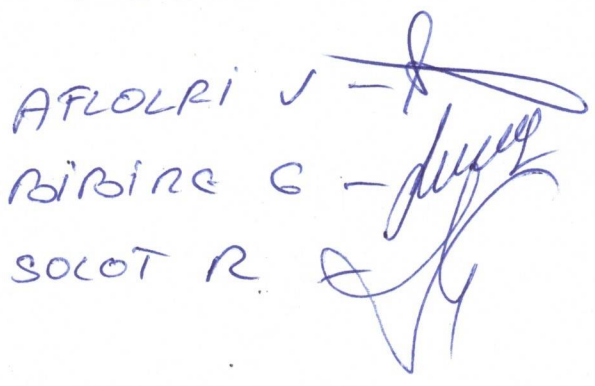 AFLOLRI V -
BIBIRE G -
SOLOT R